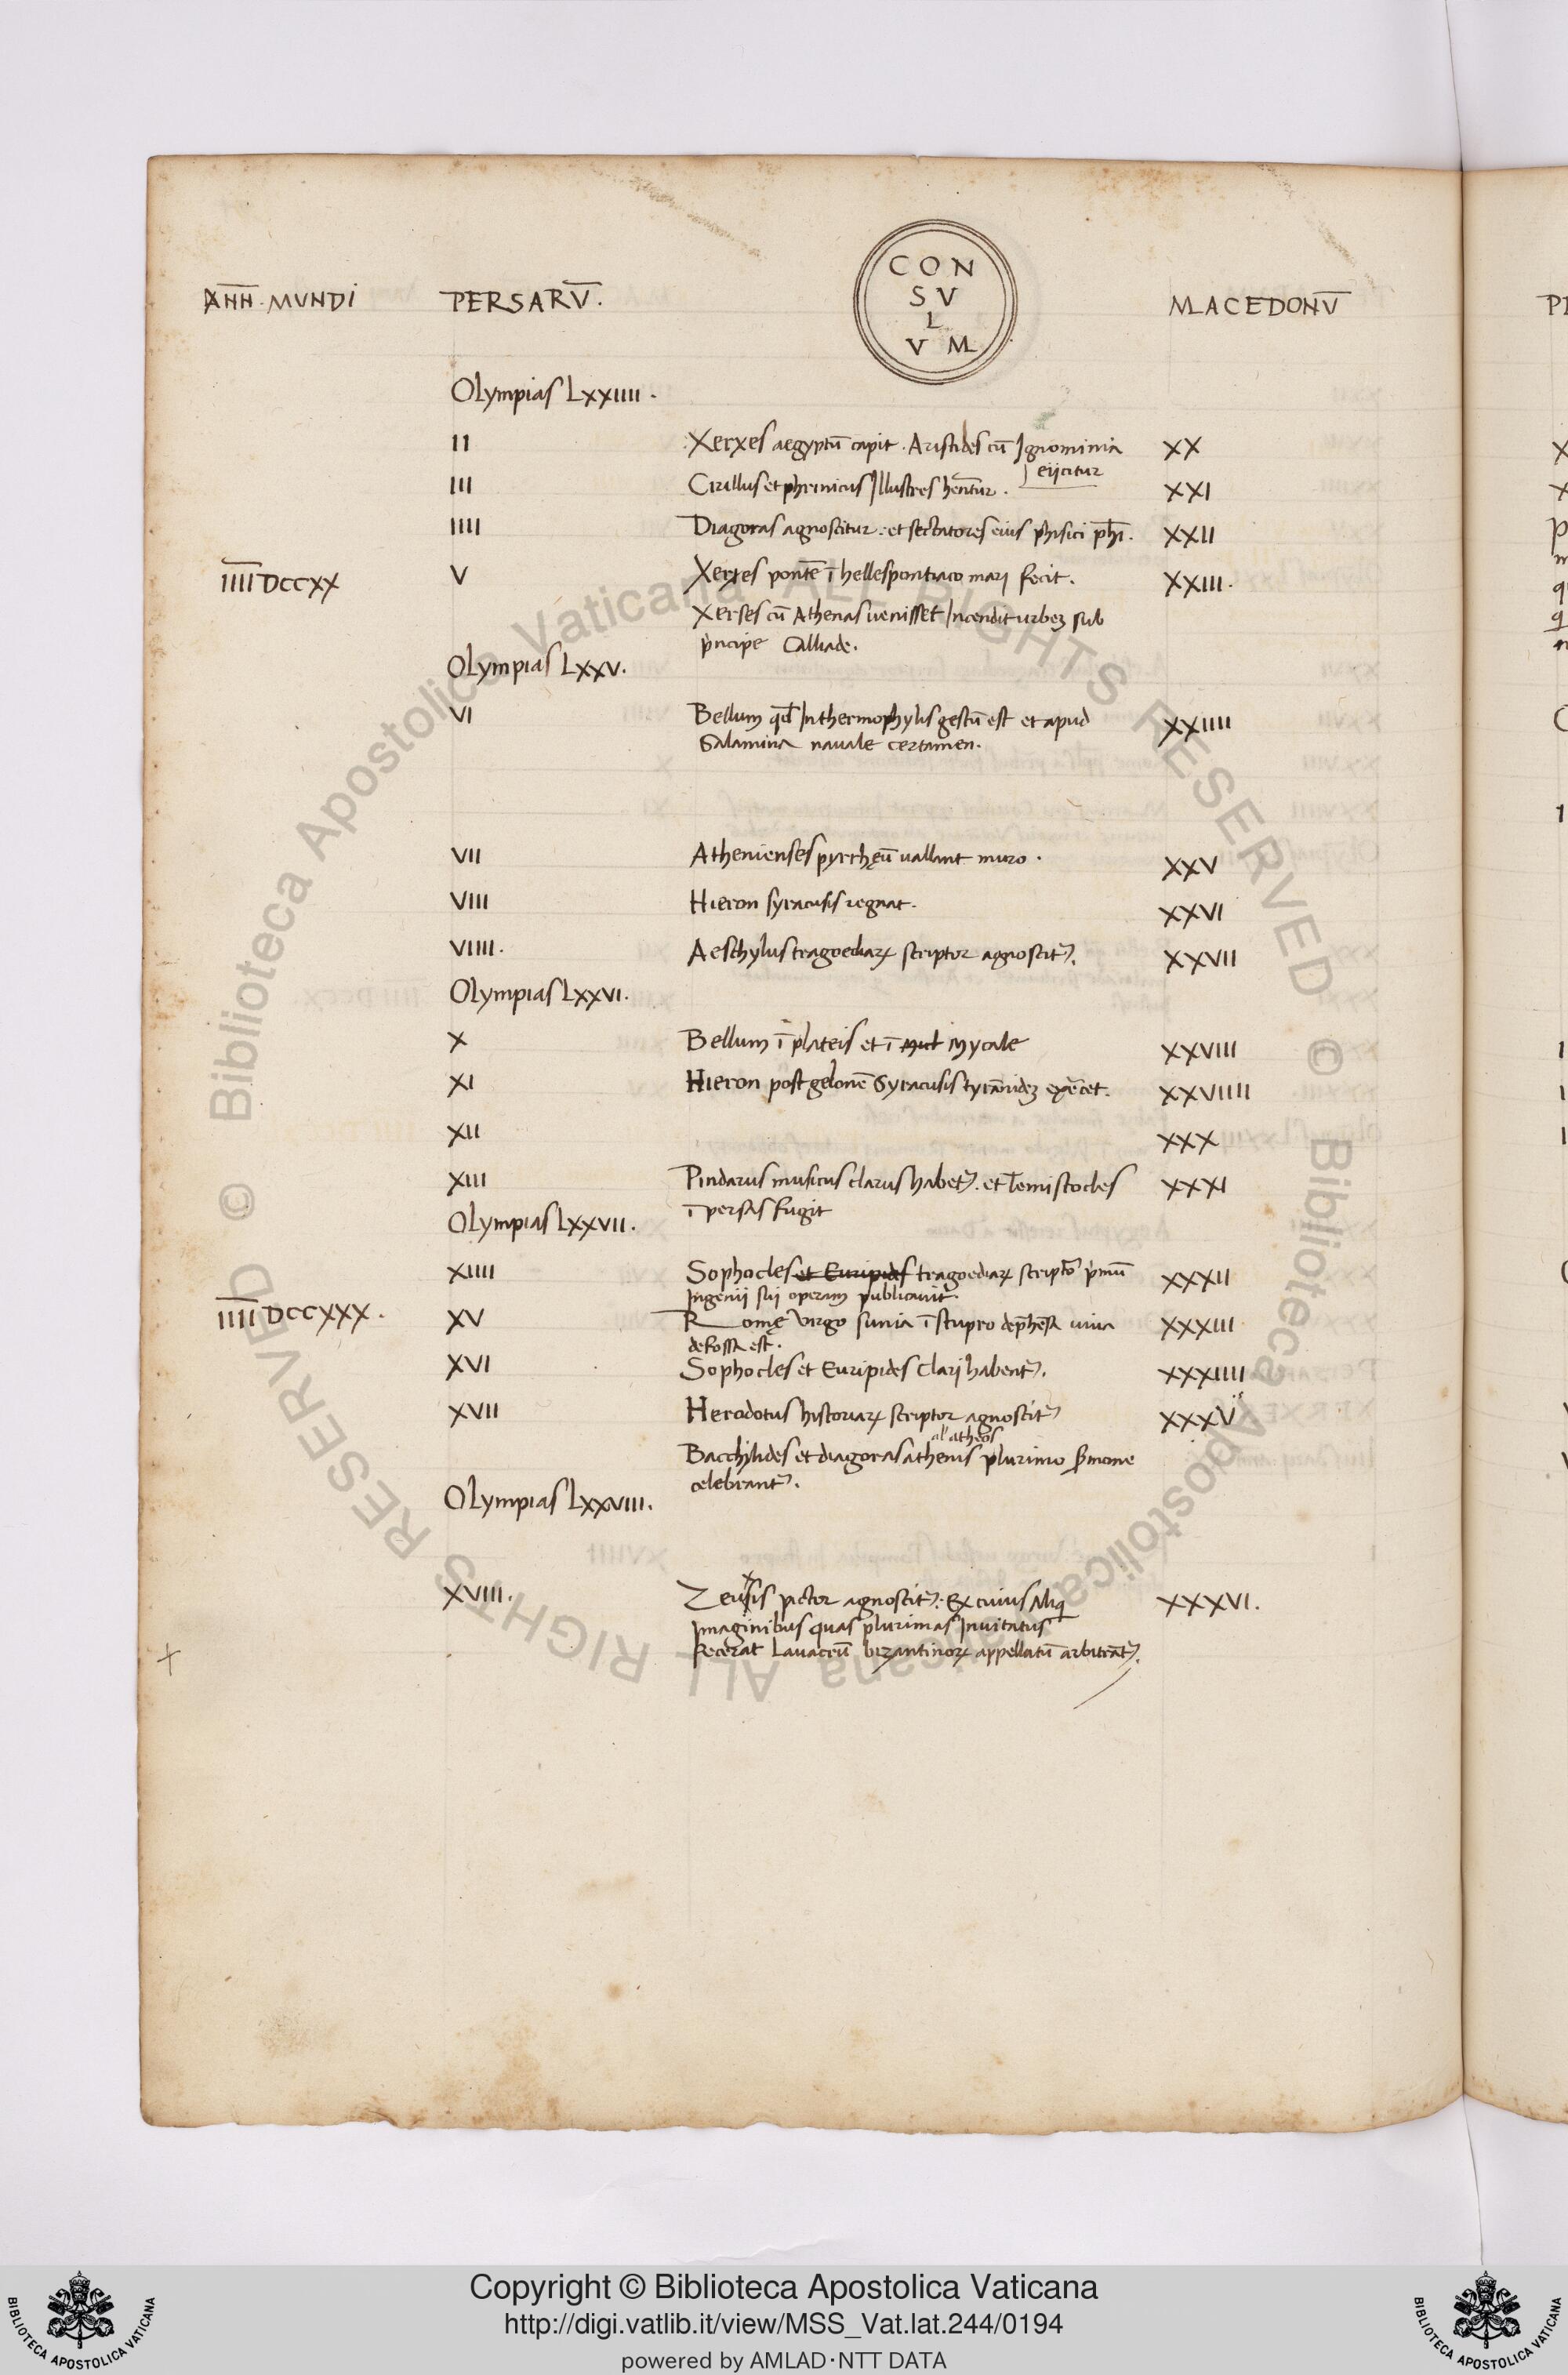 AN̅N̅. MVNDI PERSARV̅. CON SV L VM MACEDONV̅
Olympias LXXIIII.
II Xerxes aegyptu̅ capit. Aristides cu̅ Ignominia XX
eijcitur
III Cirillus et phrinicus Illustres hen̅tur. XXI
IIII Diagoras agnoscitur. et sectatores eius phisici phi̅. XXII
I̅I̅I̅I̅DCCXX V Xerxes ponte̅ i̅ hellespontiaco mari fecit. XXIII.
Xerses cu̅ Athenas uenisset Incendit urbeꝫ sub
pͥncipe Calliade.
Olympias LXXV.
VI Bellum qd̅ In thermophylis gestu̅ est et apud XXIIII
Salamina nauale certamen.
VII Athenienses pyrrhęu̅ uallant muro. XXV
VIII Hieron syracusis regnat. XXVI
VIIII. Aeschylus tragoediaꝝ scriptor agnoscit᷑. XXVII
Olympias LXXVI.
X Bellum i̅ plateis et i̅ mycale XXVIII
XI Hieron post gelone̅ Syracusis tyra̅nideꝫ exe̅cet. XXVIIII
XII XXX
XIII Pindarus musicus clarus habet᷑. et Temistocles XXXI
i̅ persas fugit
Olympias LXXVII.
XIIII Sophocles et Euripides tragoediaꝝ scripto᷑ pͥmu̅ XXXII
Ingenij sui operam publicauit.
I̅I̅I̅I̅DCCXXX. XV Romę Virgo sunia i̅ stupro dep̅hensa uiua XXXIII
defossa est.
XVI Sophocles et Euripides Clari habent᷑. XXXIIII
XVII Herodotus historiaꝝ scriptor agnoscit᷑ XXXV
al' atheos
Bacchylides et diagoras athenis plurimo s̅mone
celebrant᷑.
Olympias LXXVIII.
x
XVIII. Zeusis pictor agnoscit᷑. Ex cuius Aliq XXXVI.
Imaginibus quas plurimas Inuitatus
fecerat Lauacru̅ bizantinoꝝ appellatu̅ arbitrant᷑.
Copyright © Biblioteca Apostolica Vaticana
http://digi.vatlib.it/view/MSS_Vat.lat.244/0194
powered by AMLAD·NTT DATA
BIBLIOTECA APOSTOLICA VATICANA
BIBLIOTECA APOSTOLICA VATICANA
© Biblioteca Apostolica Vaticana ALL RIGHTS RESERVED © Biblioteca Apostolica Vaticana ALL RIGHTS RESERVED